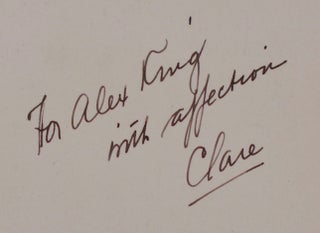 For Alex King
with affection
Clare